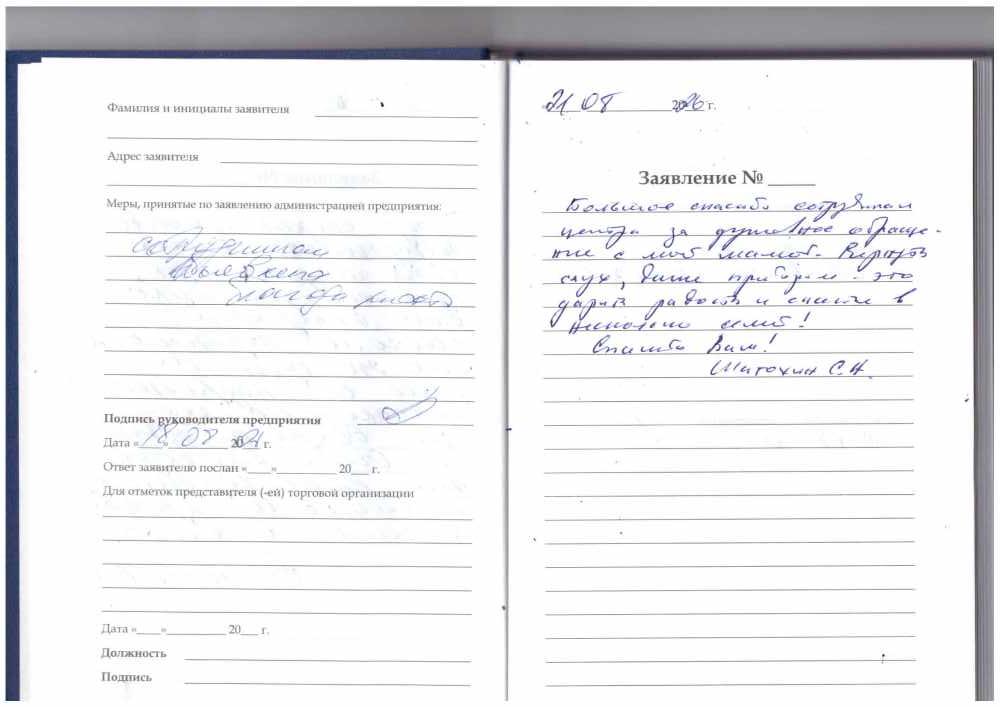 Фамилия и инициалы заявителя
Адрес заявителя
Меры, принятые по заявлению администрацией предприятия:
сотрудникам
объявлена
благодарность
Подпись руководителя предприятия
Дата «18» 08 20 г.
Ответ заявителю послан «____»__________ 20___ г.
Для отметок представителя (-ей) торговой организации
Дата «____»__________ 20___ г.
Должность
Подпись
21 08 20 г.
Заявление № _____
Большое спасибо сотрудникам
центра за душевное обраще-
ние с моей мамой. Вернуть
слух, даже прибором - это
дарить радость и счастье в
жизни семьи!
Спасибо Вам!
С.Н.